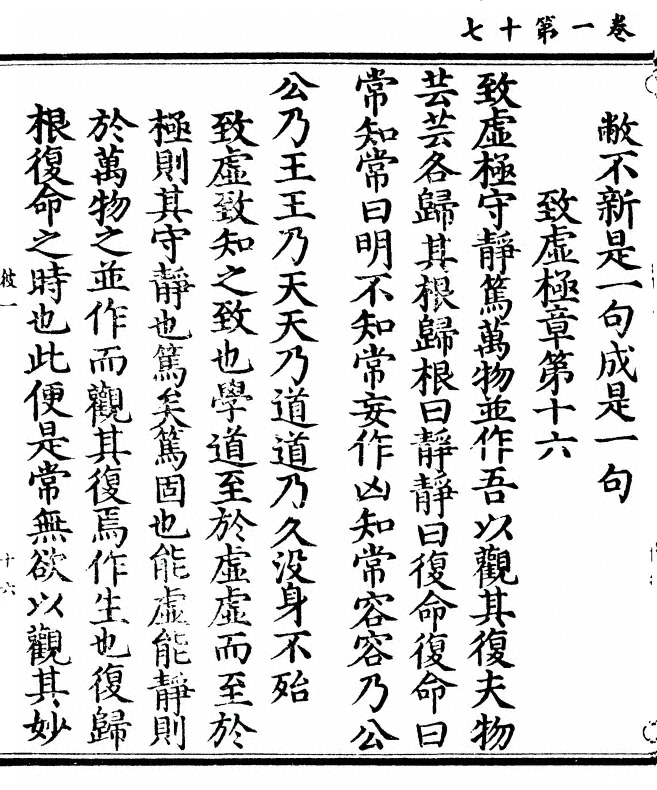 卷一第十七
敝不新是一句成是一句
致虛極章第十六
致虛極守靜篤萬物並作吾以觀其復夫物
芸芸各歸其根歸根曰靜靜曰復命復命曰
常知常曰明不知常妄作凶知常容容乃公
公乃王王乃天天乃道道乃久没身不殆
致虛致知之致也學道至於虛虛而至於
極則其守靜也篤矣篤固也能虛能靜則
於萬物之並作而觀其復焉作生也復歸
根復命之時也此便是常無欲以觀其妙
彼一
十六